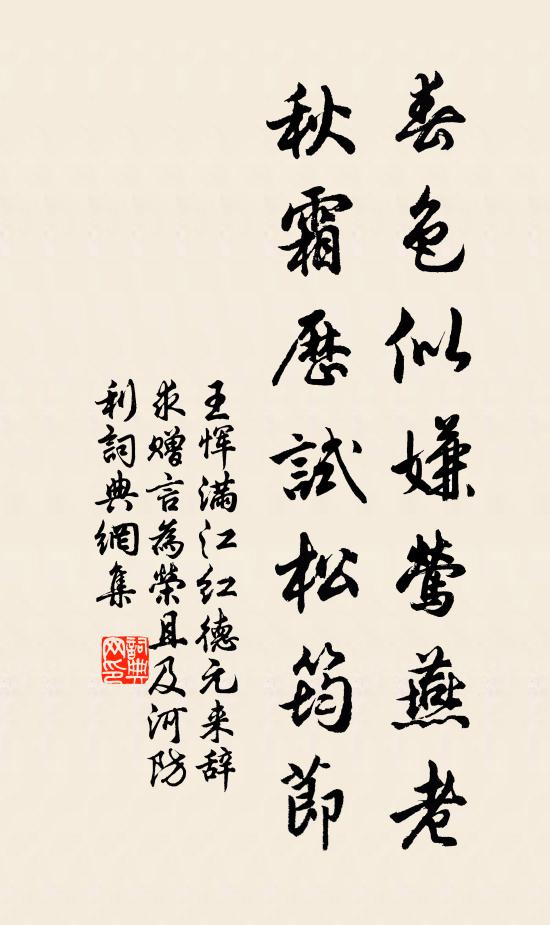 春色似嫌鶯燕老
秋霜歷試松筠節
王惲满江红德元来辞
求贈言為榮且及河防
利詞典網集
詞典
网印